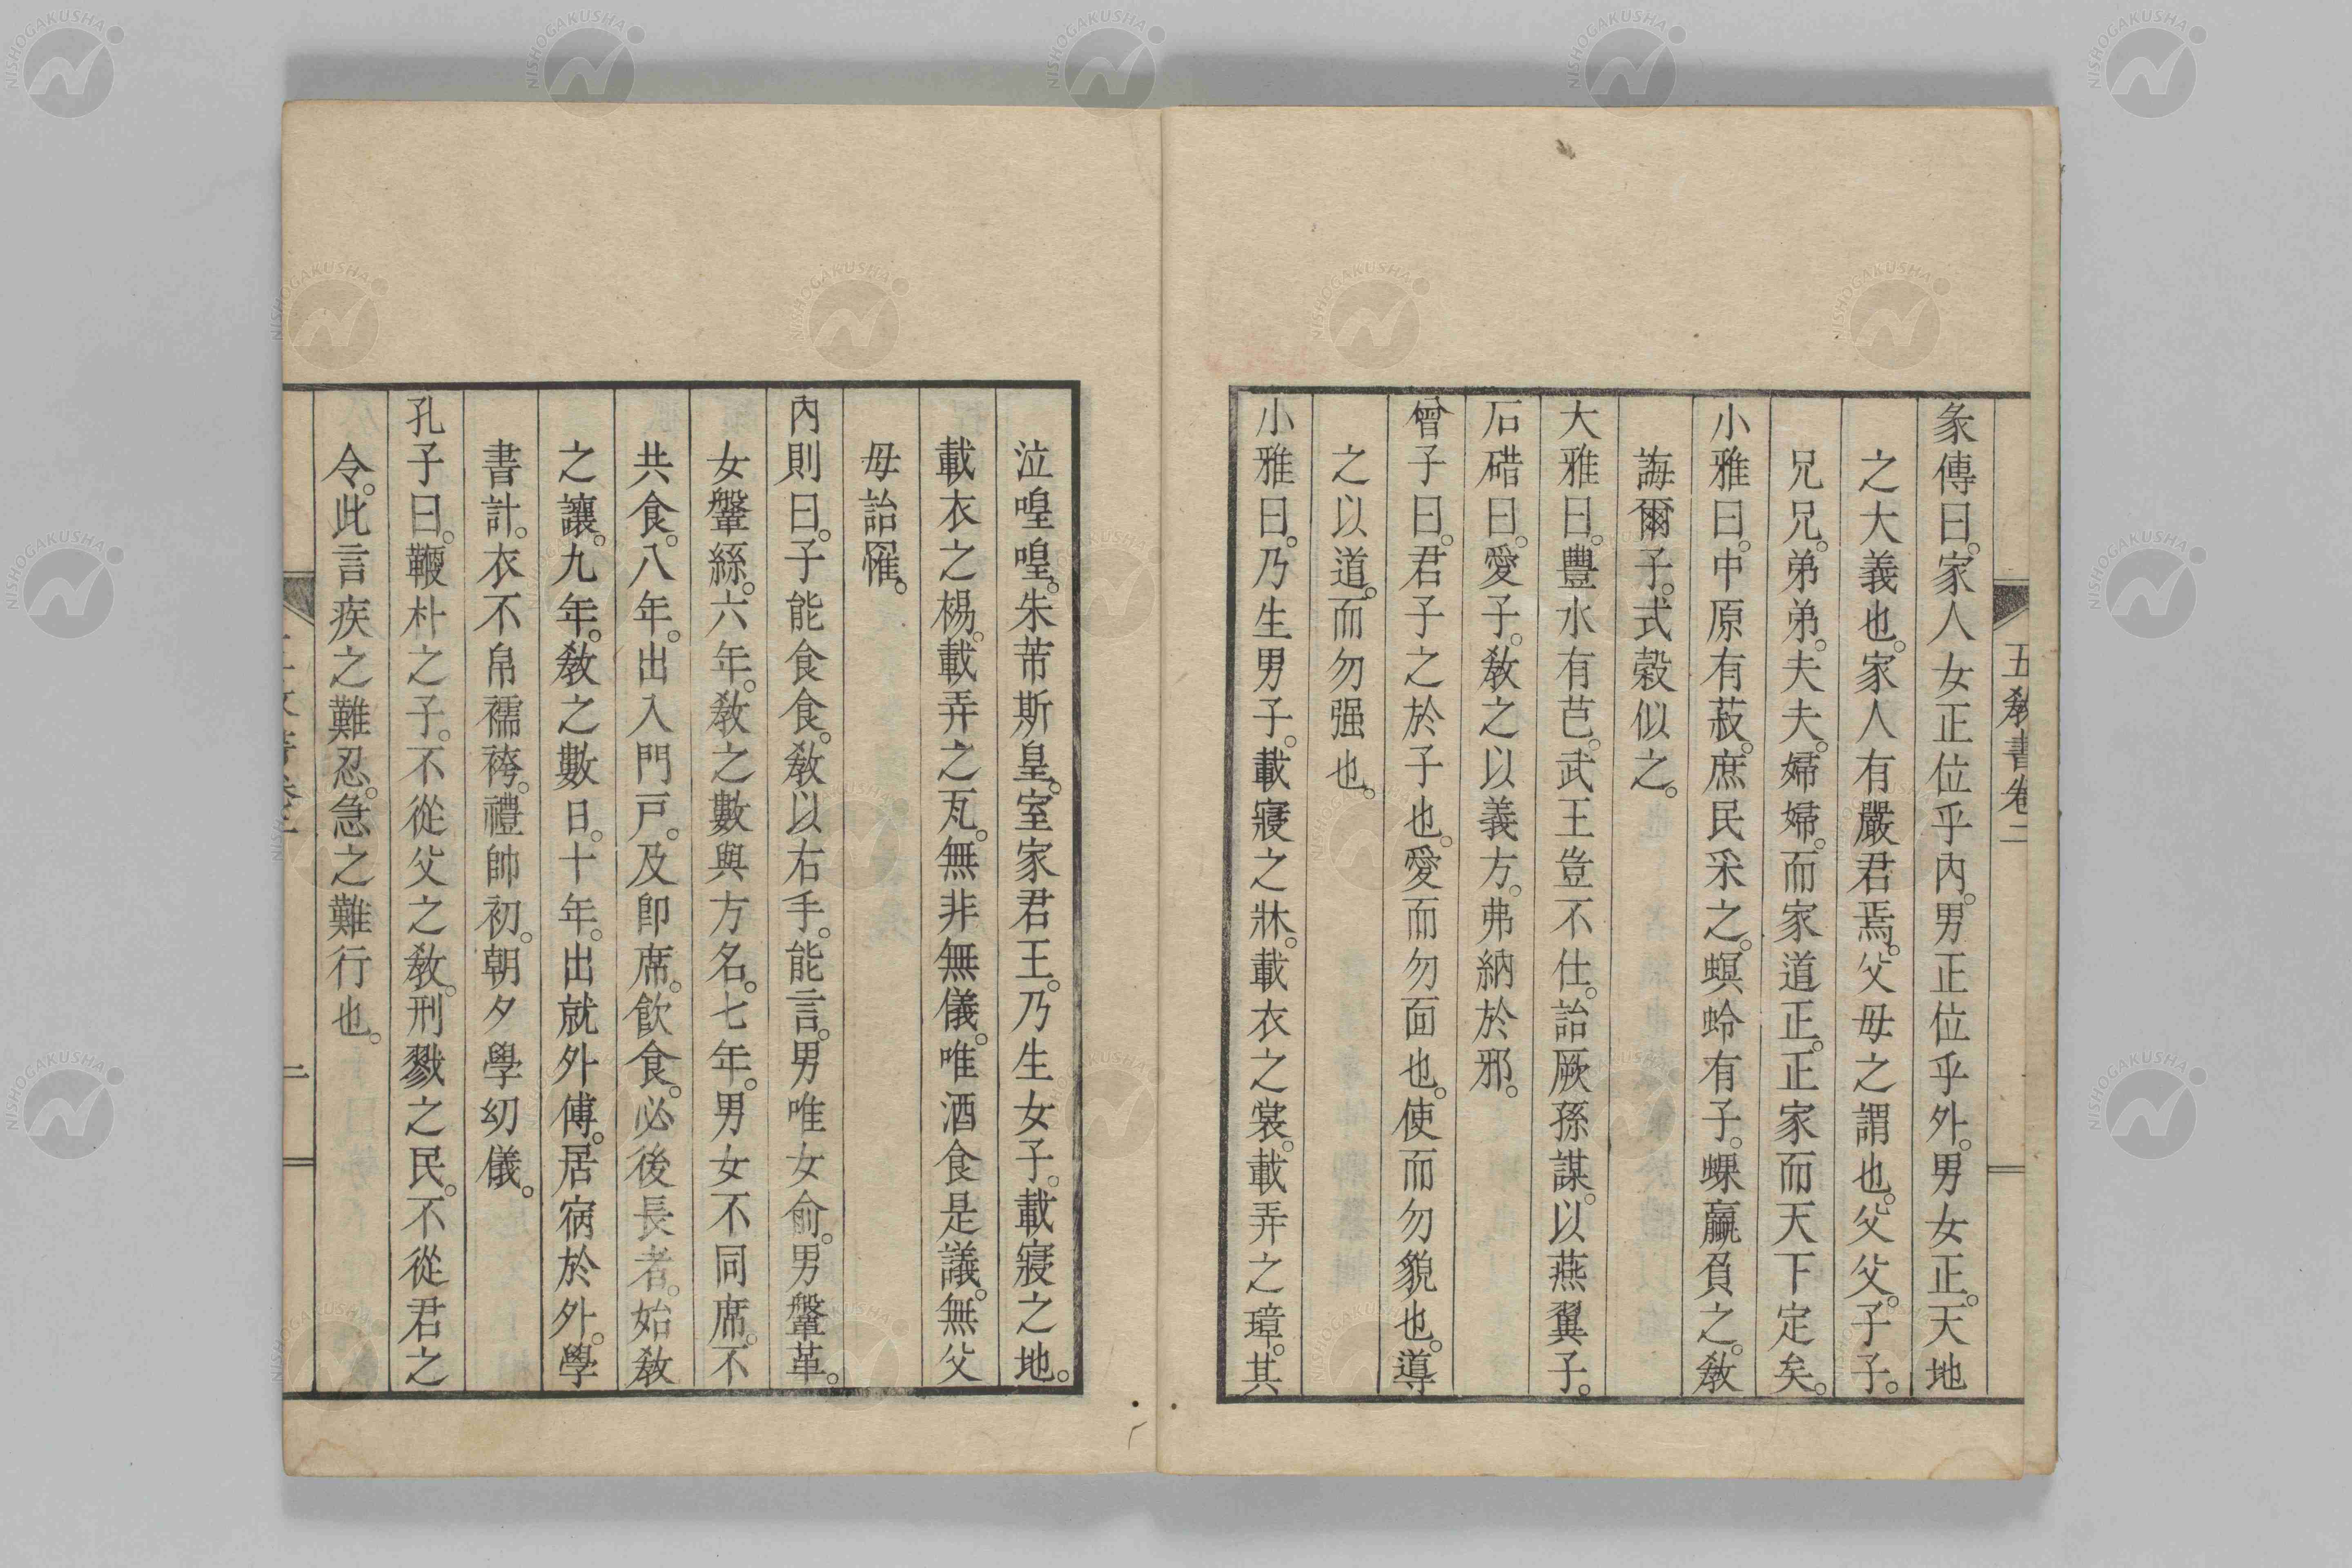 五教書卷二
彖傳曰。家人女正位乎內。男正位乎外。男女正。天地
之大義也。家人有嚴君焉。父母之謂也。父父。子子。
兄兄。弟弟。夫夫。婦婦。而家道正。正家而天下定矣。
小雅曰。中原有菽。庶民采之。螟蛉有子。蜾蠃負之。敎
誨爾子。式穀似之。
大雅曰。豐水有芑。武王豈不仕。詒厥孫謀。以燕翼子。
石碏曰。愛子。敎之以義方。弗納於邪。
曾子曰。君子之於子也。愛而勿面也。使而勿貌也。導
之以道。而勿强也。
小雅曰。乃生男子。載寢之牀。載衣之裳。載弄之璋。其
泣喤喤。朱芾斯皇。室家君王。乃生女子。載寢之地。
載衣之裼。載弄之瓦。無非無儀。唯酒食是議。無父
母詒罹。
內則曰。子能食食。敎以右手。能言。男唯女俞。男鞶革。
女鞶絲。六年。敎之數與方名。七年。男女不同席。不
共食。八年。出入門戸。及卽席。飮食。必後長者。始敎
之讓。九年。敎之數日。十年。出就外傅。居宿於外。學
書計。衣不帛襦袴。禮帥初。朝夕學幼儀。
孔子曰。鞭朴之子。不從父之敎。刑戮之民。不從君之
令。此言疾之難忍。急之難行也。
二